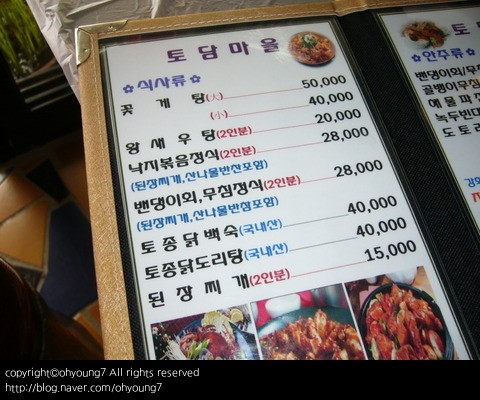 토담마을
✿식사류✿
꽃 게 탕(大) 50,000
(小) 40,000
왕 새 우 탕(2인분) 20,000
낙지볶음정식(2인분) 28,000
(된장찌개,산나물반찬포함)
밴댕이회,무침정식(2인분) 28,000
(된장찌개,산나물반찬포함)
토 종 닭 백 숙(국내산) 40,000
토종닭도리탕(국내산) 40,000
된 장 찌 개(2인분) 15,000
토
✿안주류✿
밴댕이회/무침
골뱅이무침
해 물 파
녹두빈대
도 토 리
copyright©ohyoung7 All rights reserved
http://blog.naver.com/ohyoung7